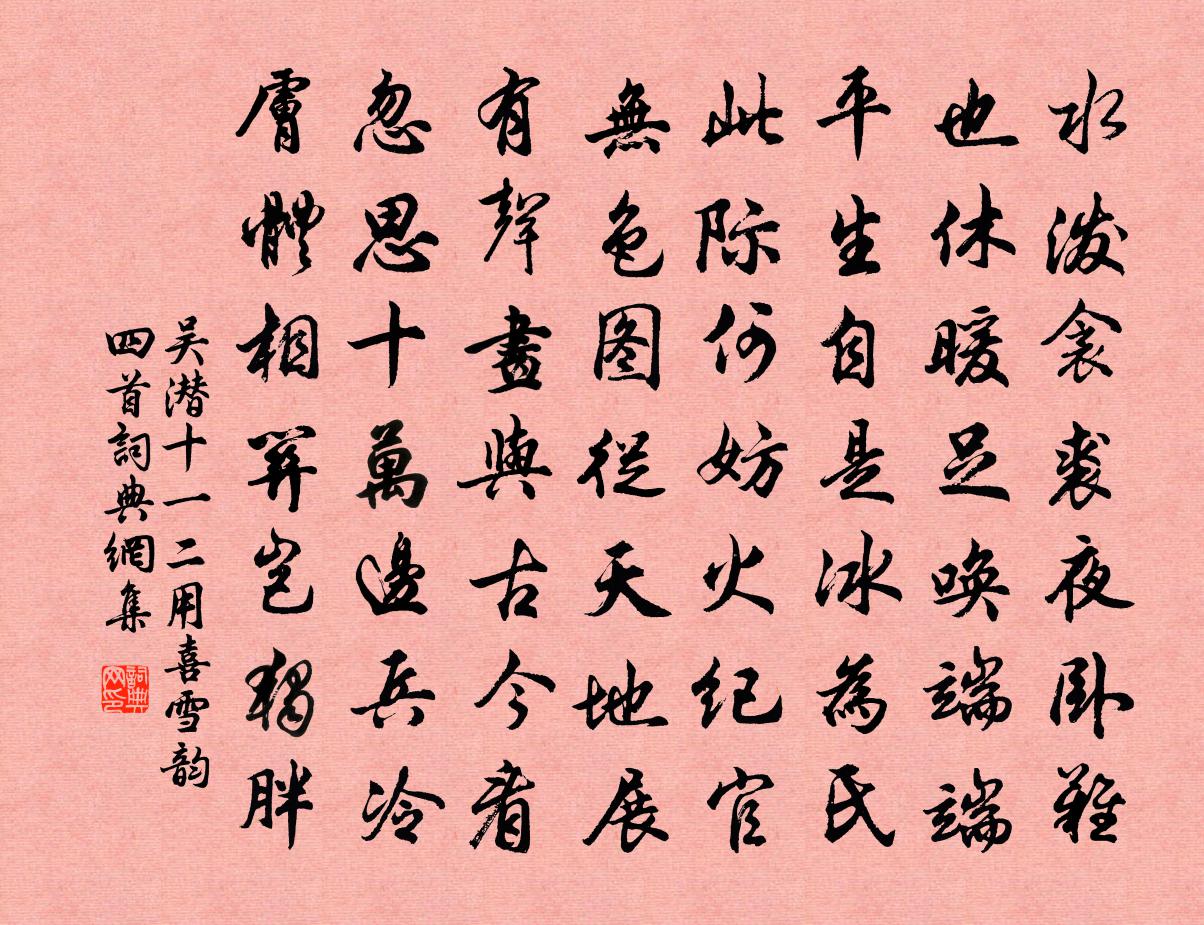 水泼衾裘夜卧難
也休暖足唤端端
平生自是冰為氏
此际何妨火纪官
無色图從天地展
有聲畫與古今看
忽思十萬邊兵冷
膚體相筭豈獨胖
吴潜十一二用喜雪韵
四首詞典網集
詞典网印